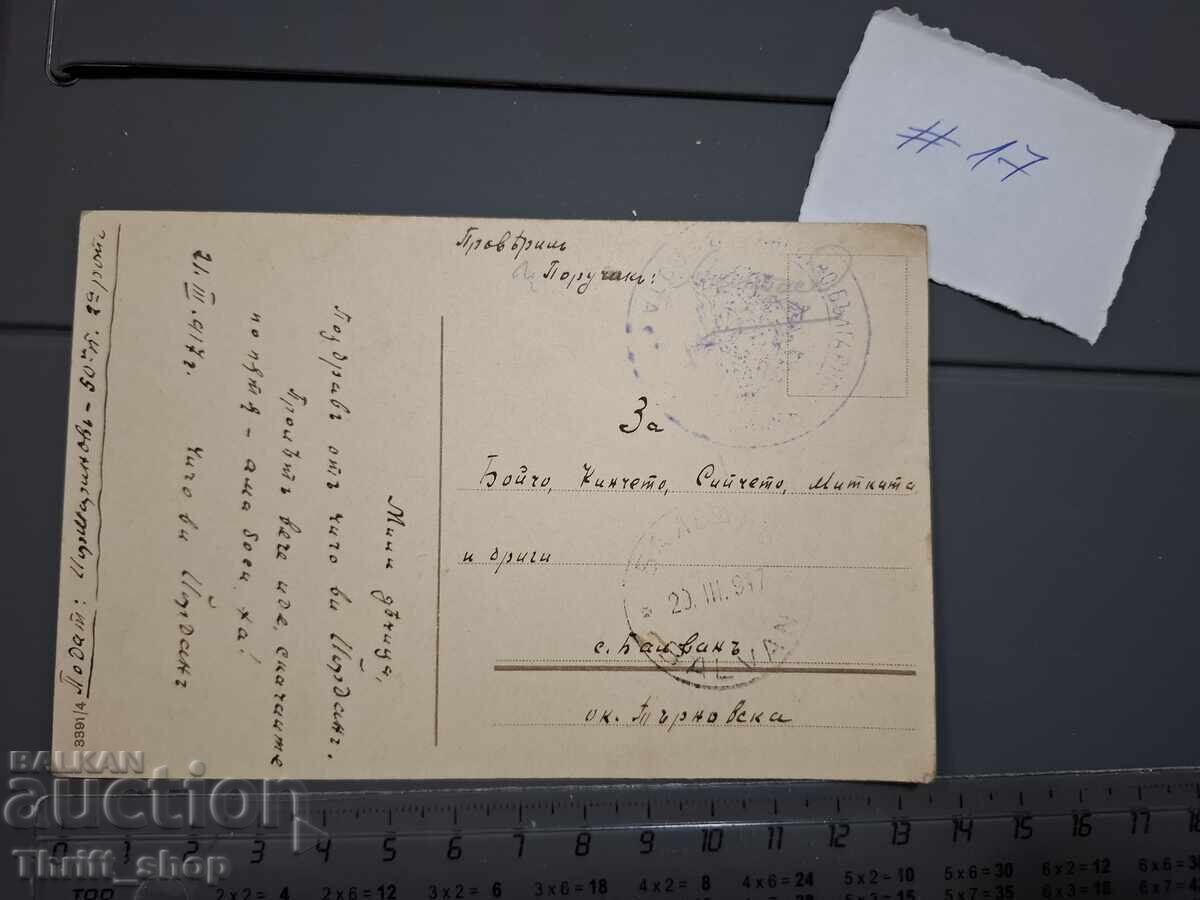 # 17
Провѣрилъ
Поручикъ:
За
Бойчо, Кинчето, Сийчето, Митката
и други
с. Балванъ
ок. Търновска
BALVAN
III. 917
Мили дѣчица,
Поздравъ отъ чичо ви Йорданъ.
Пролѣтъ вече иде, скачайте
по пѫтя - ама боси. Ха!
21. III. 917 г. Чичо ви Йорданъ
Подат: 50 п. п. 2а рота
3391/4
BALKAN
auction
Thrift_shop
0 1 2 3 4 5 6 7 8 9 10 11 12 13 14 15 16 17 18
2 x 2 = 4 2 x 6 = 12 3 x 2 = 6 3 x 6 = 18 4 x 2 = 8 4 x 6 = 24 5 x 2 = 10 5 x 6 = 30 6 x 2 = 12 6 x 6 = 36
5 x 7 = 35 6 x 3 = 18